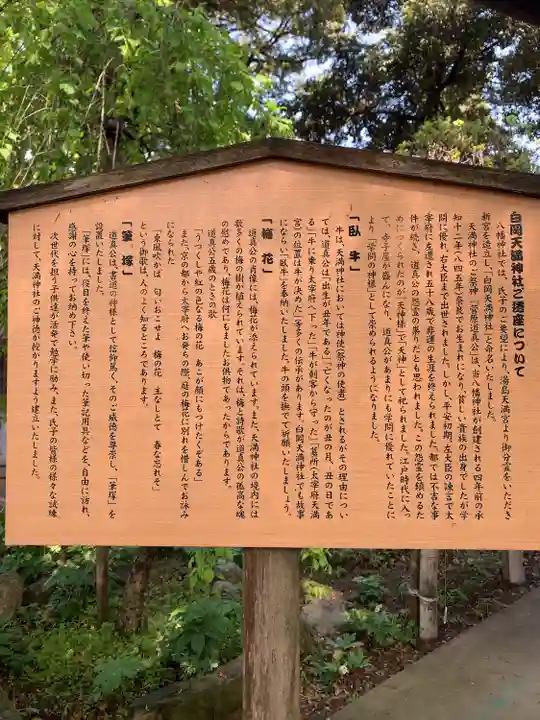 白岡天満神社ご遷座について
八幡神社では、氏子のご要望により、湯島天満宮より御分霊をいただき
新宮を造立し「白岡天満神社」と命名いたしました。
天満神社のご祭神「菅原道真公」は、当八幡神社が創建される四年前の承
知十二年(八四五年)奈良でお生まれになり、貧しい貴族の出身でしたが学
問に優れ、右大臣まで出世されました。しかし、平安初期、左大臣の讒言で太
宰府に左遷され五十八歳で悲運の生涯を終えられました。都では不吉な事
件が続き、道真公の怨霊の祟りだとも思われました。この怨霊を鎮めるた
めにつくられたのが「天神様」で「天神」として祀られました。江戸時代に入っ
て、寺子屋が盛んになり、道真公があまりにも学問に優れていたことに
より「学問の神様」として崇められるようになりました。
「臥牛」
牛は、天満神社においては神使(祭神の使者)とされるがその理由につい
ては、道真公は「出生が丑年である」「亡くなったのが丑の月、丑の日であ
る」「牛に乗り太宰府へ下った」「牛が刺客から守った」「墓所(太宰府天満
宮)の位置は牛が決めた」等多くの伝承があります。白岡天満神社でも故事
にならい「臥牛」を奉納いたしました。牛の頭を撫でて祈願いたしましょう。
「梅花」
道真公の肖像には、梅花が添えられています。また、天満神社の境内には
数多くの梅の樹が植えられています。それは、梅と詩歌が道真公の孤高な魂
の慰めであり、梅花は何にもましたお供物であったからであります。
道真公五歳のときの歌
「うつくしや紅の色なる梅の花 あこが顔にもつけたくぞある」
また、京の都から太宰府へお発ちの際、庭の梅花に別れを惜しんでお詠み
になられた
「東風吹かば 匂いおこせよ 梅の花 主なしとて 春な忘れそ」
という御歌は、人のよく知るところであります。
「筆塚」
道真公は、書道の神様として信仰篤く、そのご威徳を尊崇し、「筆塚」を
設置いたしました。
「筆塚」には、役目を終えた筆や使い切った筆記用具などを、自由に訪れ、
感謝の心を持ってお納め下さい。
次世代を担う子供達が活発で勉学に励み、また、氏子の皆様の様々な試練
に対して、天満神社のご神徳が授かりますよう建立いたしました。